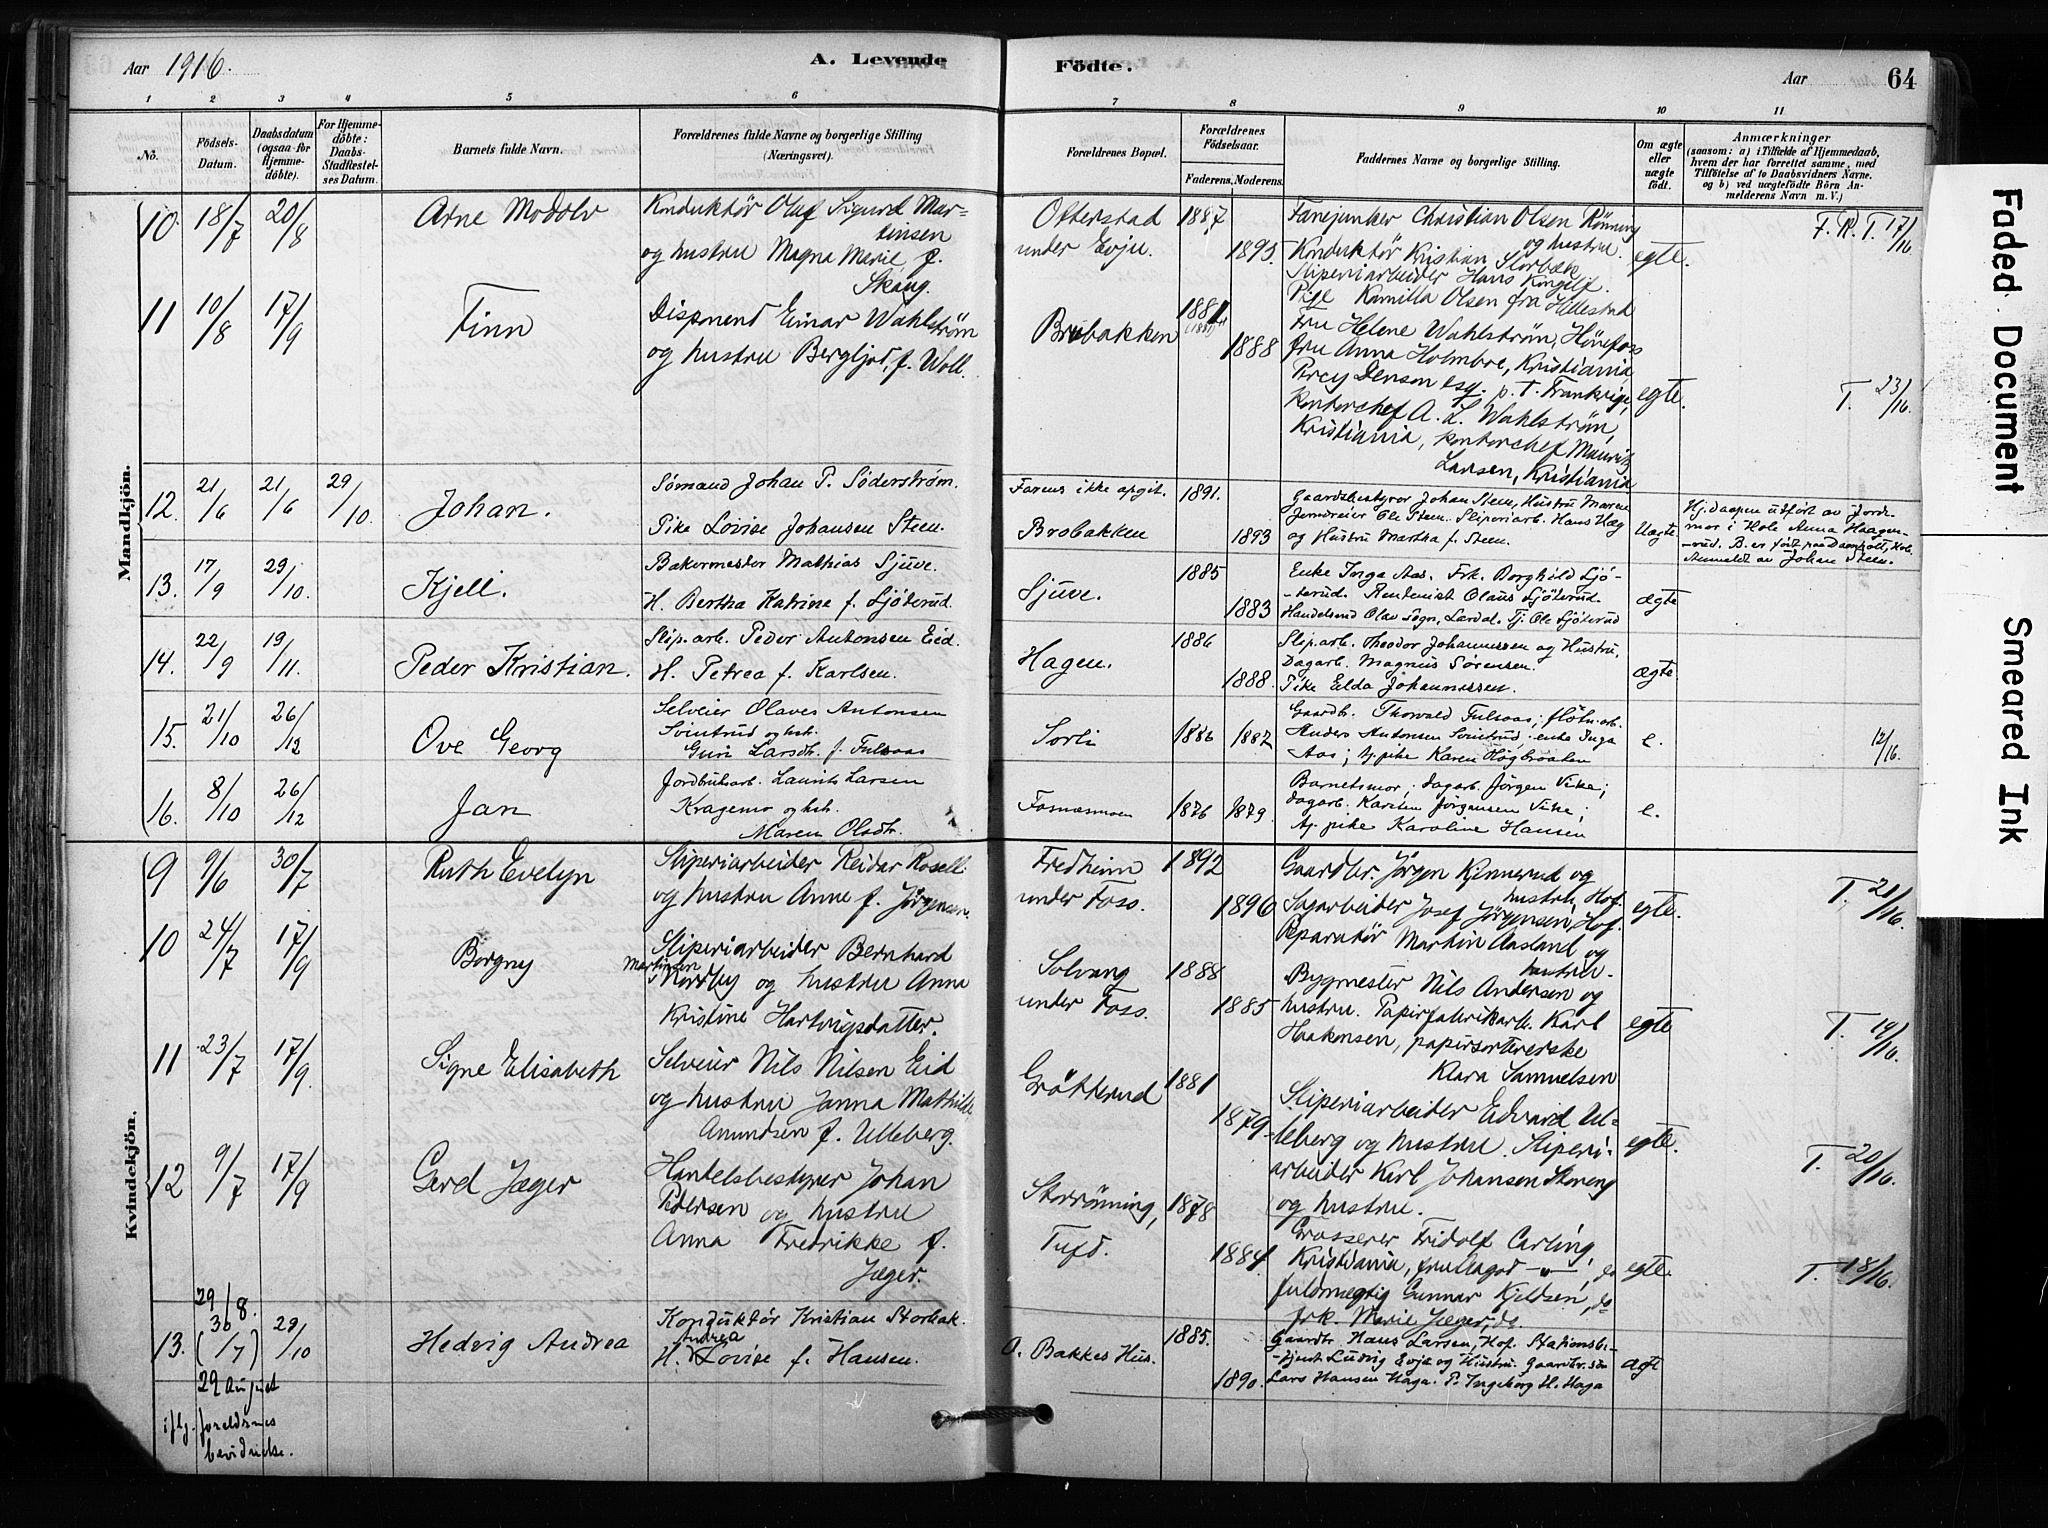 Aar 1916.
A. Levende
Födte.
Aar
64
1 2 3 4 5 6 7 8 9 10 11
No.
Födsels-Datum.
Daabsdatum (ogsaa for Hjemme-döbte).
For Hjemme-döbte: Daabs-Stadfæstel-ses Datum.
Barnets fulde Navn.
Forældrenes fulde Navne og borgerlige Stilling
(Næringsvei).
Forældrenes Bopæl.
Forældrenes Födselsaar.
Faderens. Moderens.
Faddernes Navne og borgerlige Stilling.
Om ægte eller uægte født.
Anmærkninger
(saasom: a) i Tilfælde af Hjemmedaab,
hvem der har forrettet samme, med
Tilföielse af to Daabsvidners Navne.
og b) ved uægtefödte Börn An-
melderens Navn m. V.)
Mandkjön.
10. 18/7 20/8 Arne Modolv
Konduktör Oluf Sigurd Mar-
tinsen
og hustru Magna Marie f.
Skaug.
Otterstad 1887
under Evju. 1895.
Fanejunker Christian Olsen Rönning
og hustru.
Konduktör Kristian Storbæk
Sliperiarbeider Hans Kongelf.
Pige Kamilla Olsen fra Hillestad
egte.
F. R. T. 17/16
11 10/8 17/9 Finn
Disponend Einar Wahlström
og hustru Bergljod, f. Woll.
Brobakken 1881 1888
Fru Helene Wahlström, Hönefoss
fru Anna Holmboe, Kristiania
Percy Denson esq. p. t. Frankrige,
kontorchef A. L. Wahlström,
Kristiania, kontorchef Mauritz
Larsen, Kristiania
egte.
T. 23/16.
12. 21/6 21/6 29/10. Johan.
Sömand Johan P. Söderström.
Pike Lovise Johansen Steen.
Farens ikke opgit. 1891.
Brobakken 1893
Gaardsbestyrer Johan Steen, Hustru Maren
Jerndreier Ole Steen. Sliperiarb. Hans Hæg
og Hustru Martha f. Steen.
Uægte
Hj. daapen utfört av Jord-
mor i Hole Anna Haagen-
-rud. B. er födt paa Damholt, Hole
Anmeldt av Johan Steen.
13. 17/9 29/10. Kjell.
Bakermester Mathias Sjuve.
H. Bertha Katrine f. Sjöterud.
Sjuve. 1885 1883
Enke Inga Aas. Frk. Borghild Sjö-
-terud. Rentenist Olaus Sjöterud.
Handelsmd Olav Sögn, Lærdal. Tj. Ole Sjöterud
ægte
14. 22/9 19/11. Peder Kristian.
Slip.arb. Peder Antonsen Eid.
H. Petrea f. Karlsen.
Hagen. 1886 1888.
Slip.arb. Theodor Johannessen og Hustru.
Dagarb. Magnus Sörensen.
Pike Elda Johannessen.
ægte
15. 21/10 26/12 Ove Georg
Selveier Olaves Antonsen
Svintrud og hst.
Guri Larsdtr. f. Fulsaas
Sorli 1886 1887
Gaardb. Thorvald Fulsaas; flötn.arb.
Anders Antonsen Svintrud; enke Inga
Aas; tj. pike Karen Högbraaten
e.
12/16.
16. 8/10 26/12 Jan
Jordbruksarb. Laurits Larsen
Kragemo og hst.
Maren Olsdtr.
Fosnæsmoen 1876 1879.
Barnets mor; dagarb. Jörgen Vike;
dagarb. Karsten Jörgensen Vike;
tj. pike Karoline Hansen
e.
Kvindekjön.
9 9/6 30/7 Ruth Evelyn
Sliperiarbeider Reidar Rosell
og hustru Anne f. Jörgensen.
Fredheim 1892
under Foss. 1896
Gaardbr. Jörgen Kjennerud og
hustru, Hof.
Sagarbeider Josef Jörgensen, Hof.
Reparatör Martin Aasland og
hustru.
egte.
T. 21/16.
10 24/7 17/9 Borgny
Sliperiarbeider Bernhard
Martinsen
Nordby og hustru Anna
Kristine Hartvigsdatter.
Solvang 1888
under Foss. 1885
Bygmester Nils Andersen og
hustru. Papirfabrikarb. Karl
Haakonsen, papersortererske
Klara Samuelsen
egte
T. 19/16.
11 23/7 17/9. Signe Elisabeth
Selveier Nils Nilsen Eid
og hustru Janna Mathilde
Amundsen f. Ulleberg.
Grötterud 1881 1879
Sliperiarbeider Edvard Ul-
leberg og hustru. Sliperi-
arbeider Karl Johansen Storeng
og hustru.
egte.
T. 20/16.
12 9/7 17/9 Gerd Jæger
Handelsbestyrer Johan
Pedersen og hustru
Anna Fredrikke f.
Jæger.
Storrönning, 1878
Tufd. 1884
Grosserer Fridolf Carling,
Kristiania, fru Aagod — " —, do
fuldmegtig Gunnar Kjeldsen, do
frk. Marie Jæger, do.
egte.
T. 18/16.
13. 29/8. (30/7) 29/10 Hedvig Andrea
Konduktör Kristian Storbæk.
Andrea
H. Lovise f. Hansen.
O. Bakkes Hus. 1885. 1890.
Gaardbr Hans Larsen, Hof. Stationsbe-
-tjent Ludvig Evje og Hustru. Gaardbr. sön
Lars Hansen Haga. P. Ingeborg H. Haga
ægte
29 August
iflg. foreldrenes
bevidnelse.
Faded Document
Smeared Ink